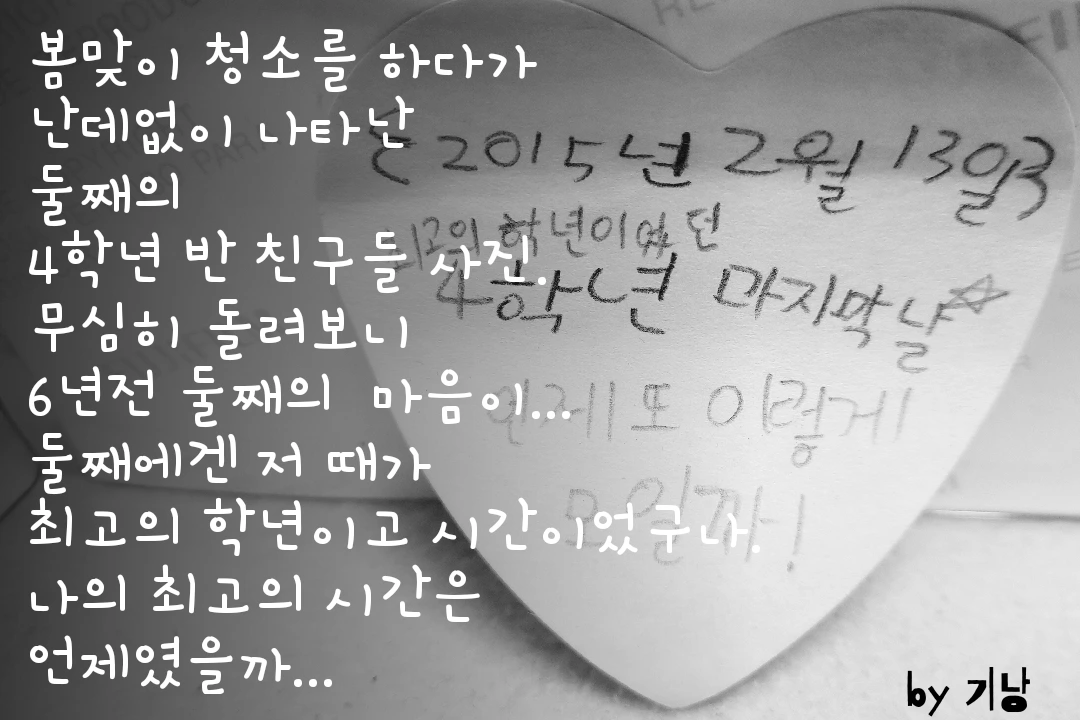 봄맞이 청소를 하다가
난데없이 나타난
둘째의
4학년 반 친구들 사진.
무심히 돌려보니
6년전 둘째의 마음이...
둘째에겐 저 때가
최고의 학년이고 시간이었구나.
나의 최고의 시간은
언제였을까...
2015년 2월 13일
최고의 학년이었던
4학년 마지막날☆
언제 또 이렇게
모일까!
by 기낭